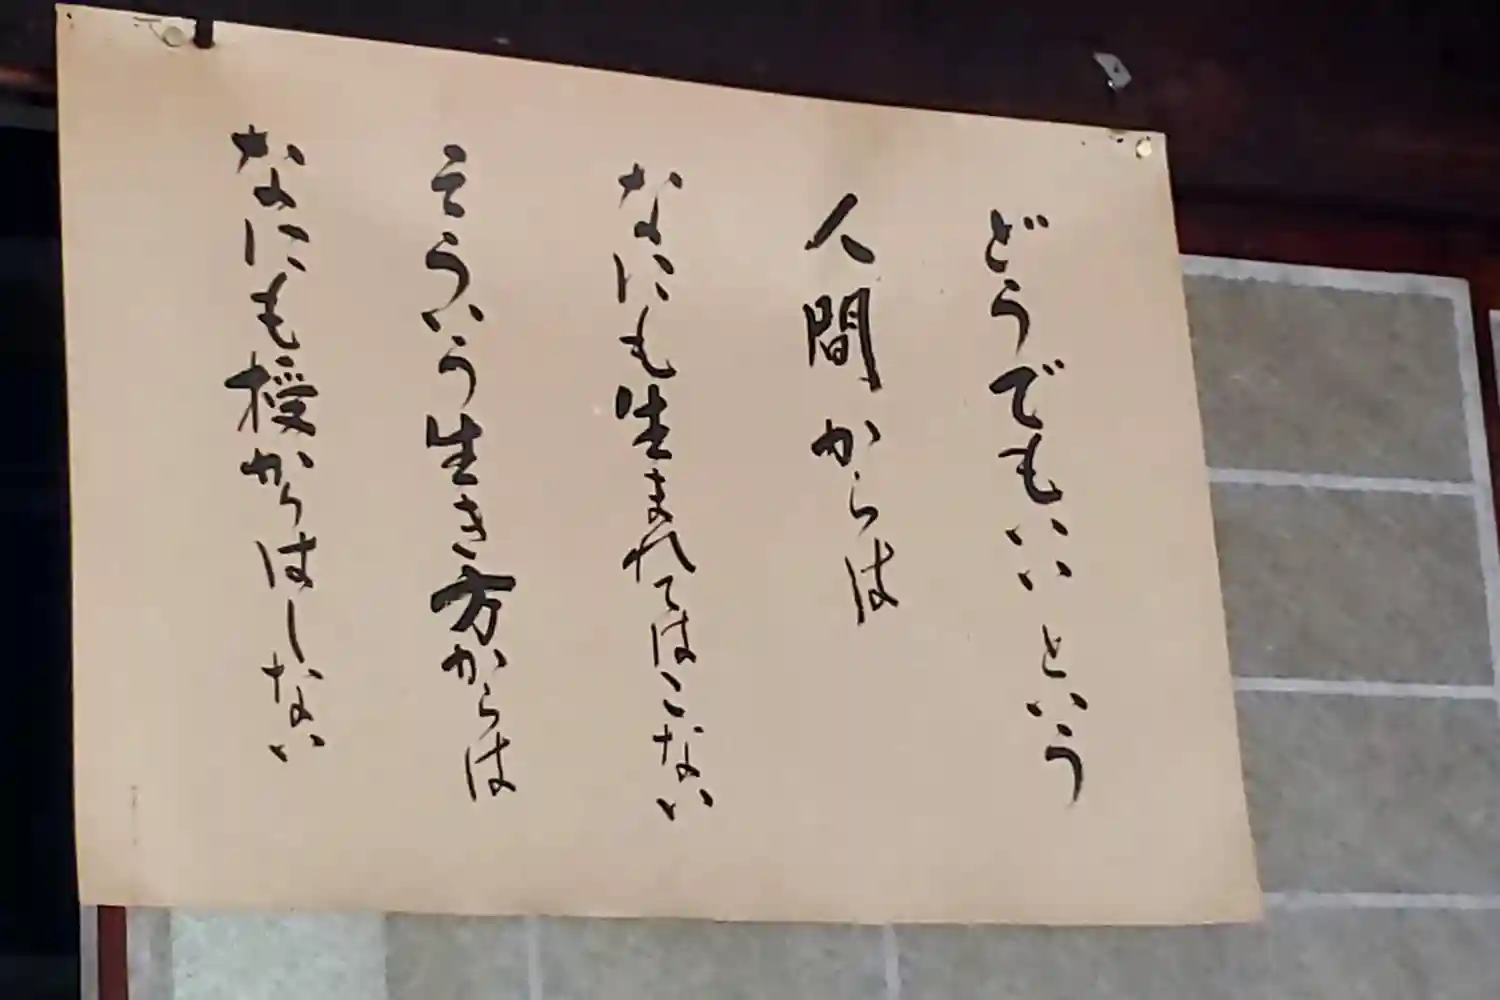 どうでもいいという
人間からは
なにも生まれてはこない
そういう生き方からは
なにも授からはしない